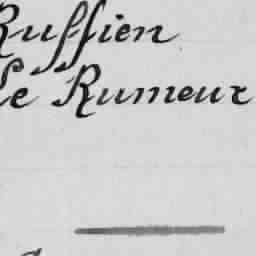 Ruffien
Le Rumeur